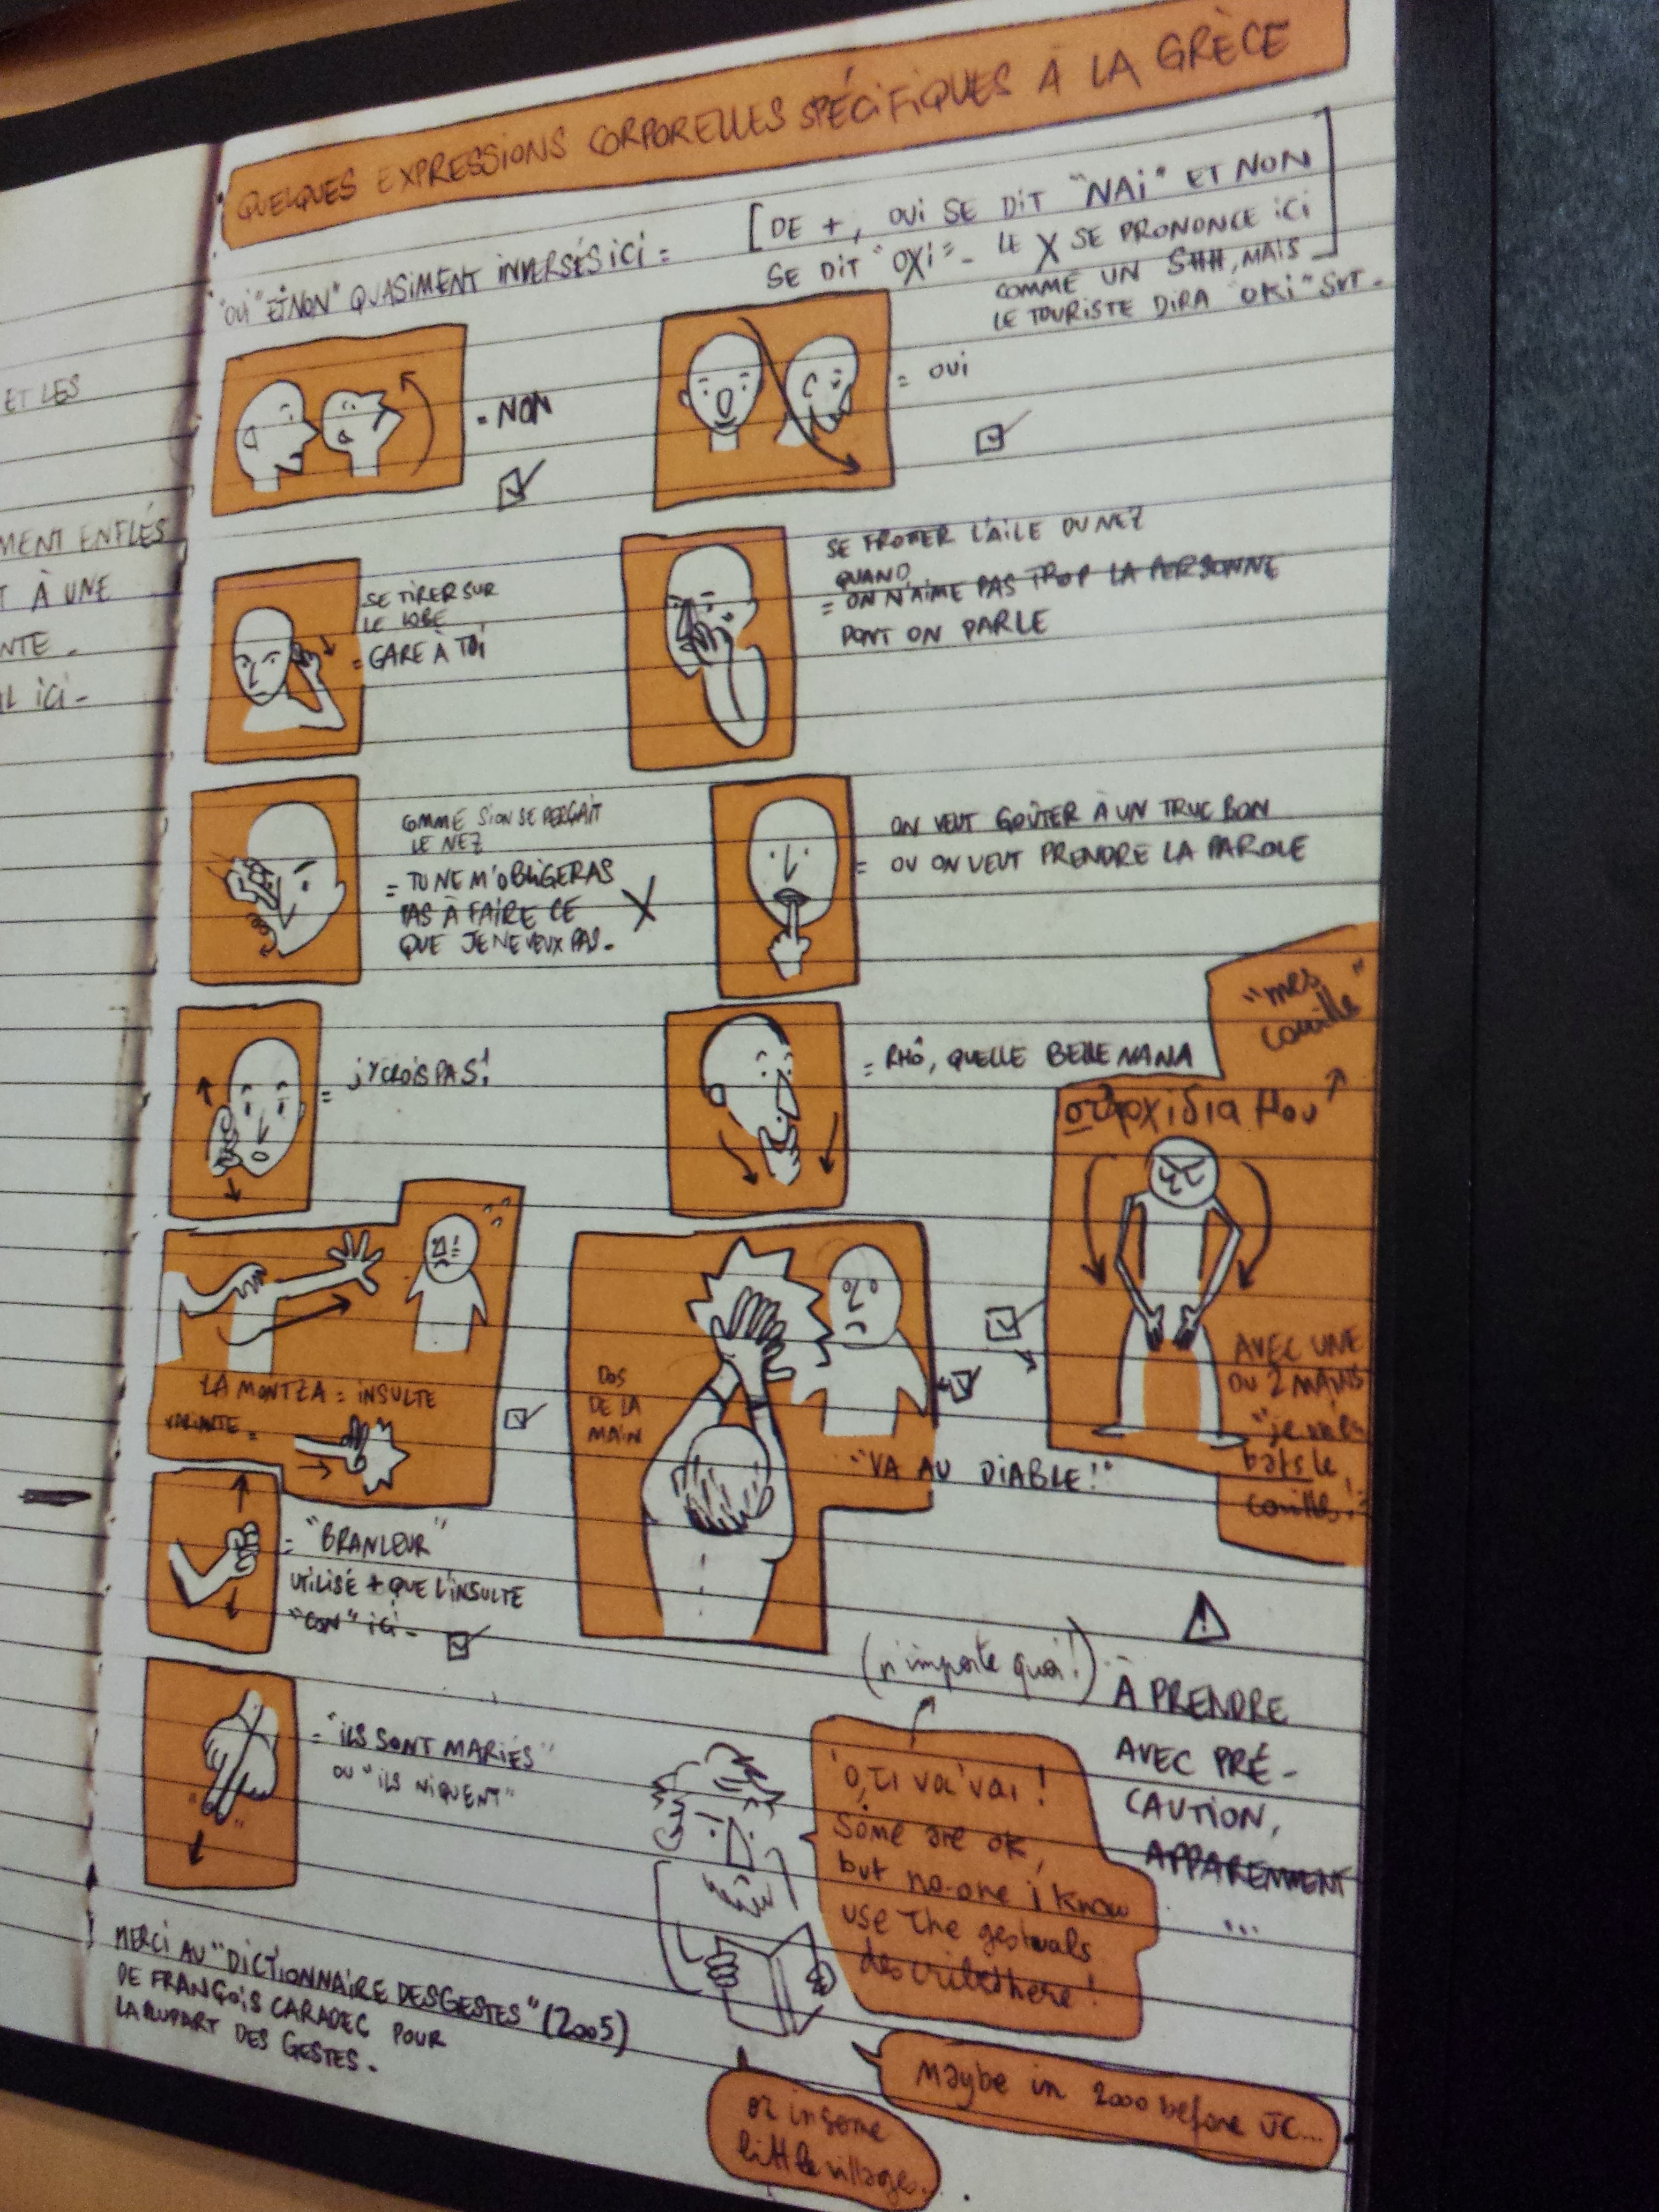 QUELQUES EXPRESSIONS CORPORELLES SPÉCIFIQUES À LA GRÈCE
"OUI" ET "NON" QUASIMENT INVERSÉS ICI =
[DE +, OUI SE DIT "NAI" ET NON
SE DIT "OXI" - LE X SE PRONONCE ICI
COMME UN SHH, MAIS]
LE TOURISTE DIRA "OKI" SVT.
= NON
= OUI
ET LES
MENT ENFLÉS
T À UNE
NTE.
IL ICI-
SE TIRER SUR
LE LOBE
= GARE À TOI
SE FROTTER L'AILE DU NEZ
QUAND
= ON N'AIME PAS TROP LA PERSONNE
DONT ON PARLE
COMME SI ON SE PERÇAIT
LE NEZ
= TU NE M'OBLIGERAS
PAS À FAIRE CE
QUE JE NE VEUX PAS.
X
ON VEUT GOÛTER À UN TRUC BON
= OU ON VEUT PRENDRE LA PAROLE
= J'Y CROIS PAS!
= RHÔ, QUELLE BELLE NANA
"mes
couille"
μου
AVEC UNE
OU 2 MAINS
"je
bats le
couilles!"
LA MONTZA = INSULTE
VARIANTE =
DOS
DE LA
MAIN
"VA AU DIABLE!"
= "BRANLEUR"
UTILISÉ + QUE L'INSULTE
"CON" ICI-
= "ILS SONT MARIÉS"
OU "ILS NIQUENT"
(n'importe quoi!)
ό,τι να'ναι!
Some are ok,
but no-one i know
use the gestuals
described here!
À PRENDRE
AVEC PRÉ-
CAUTION,
APPAREMMENT
...
MERCI AU "DICTIONNAIRE DES GESTES" (2005)
DE FRANÇOIS CARADEC POUR
LA PLUPART DES GESTES.
Maybe in 2000 before JC...
or in some
little villages.